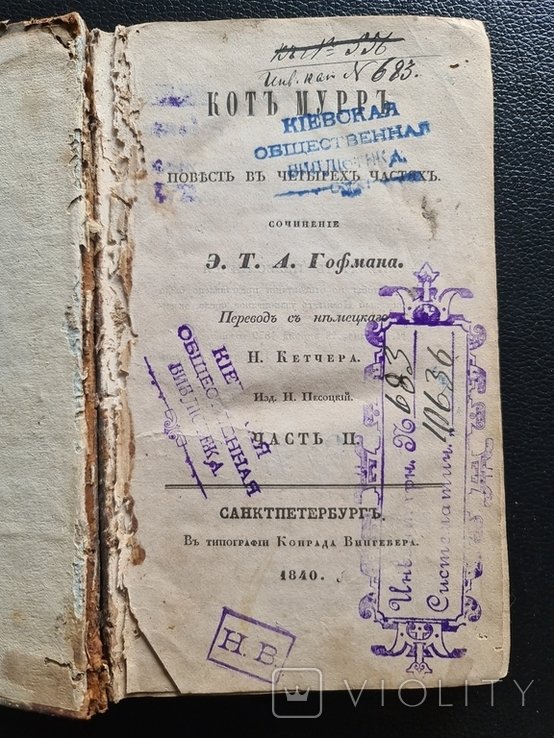 къ № 336
Инв. кат. № 683.
КОТЪ МУРРЪ.
КІЕВСКАЯ
ОБЩЕСТВЕННАЯ
БИБЛІОТЕКА.
ПОВѢСТЬ ВЪ ЧЕТЫРЕХЪ ЧАСТЯХЪ.
СОЧИНЕНІЕ
Э. Т. А. Гофмана.
Переводъ съ нѣмецкаго
Н. КЕТЧЕРА.
Изд. И. Песоцкій.
ЧАСТЬ II.
КІЕВСКАЯ
ОБЩЕСТВЕННАЯ
БИБЛІОТЕКА
№ 683
Систематич. 10636
САНКТПЕТЕРБУРГЪ.
Въ типографіи Конрада Вингебера.
1840.
Н. В.
VIOLITY